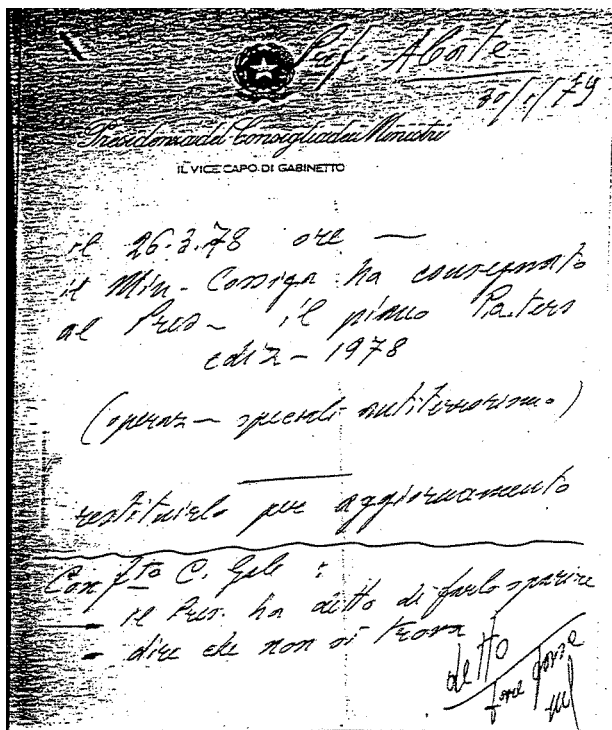 Prof. Abate
30/1/79
Presidenza del Consiglio dei Ministri
IL VICE CAPO DI GABINETTO
il 26.3.78 ore —
il Min. Cossiga ha consegnato
al Pres – il piano Paters
ediz – 1978
(operaz – speciali antiterrorismo)
restituirlo per aggiornamento
C. Gab :
– il Pres. ha detto di farlo sparire
– dire che non si trova
detto